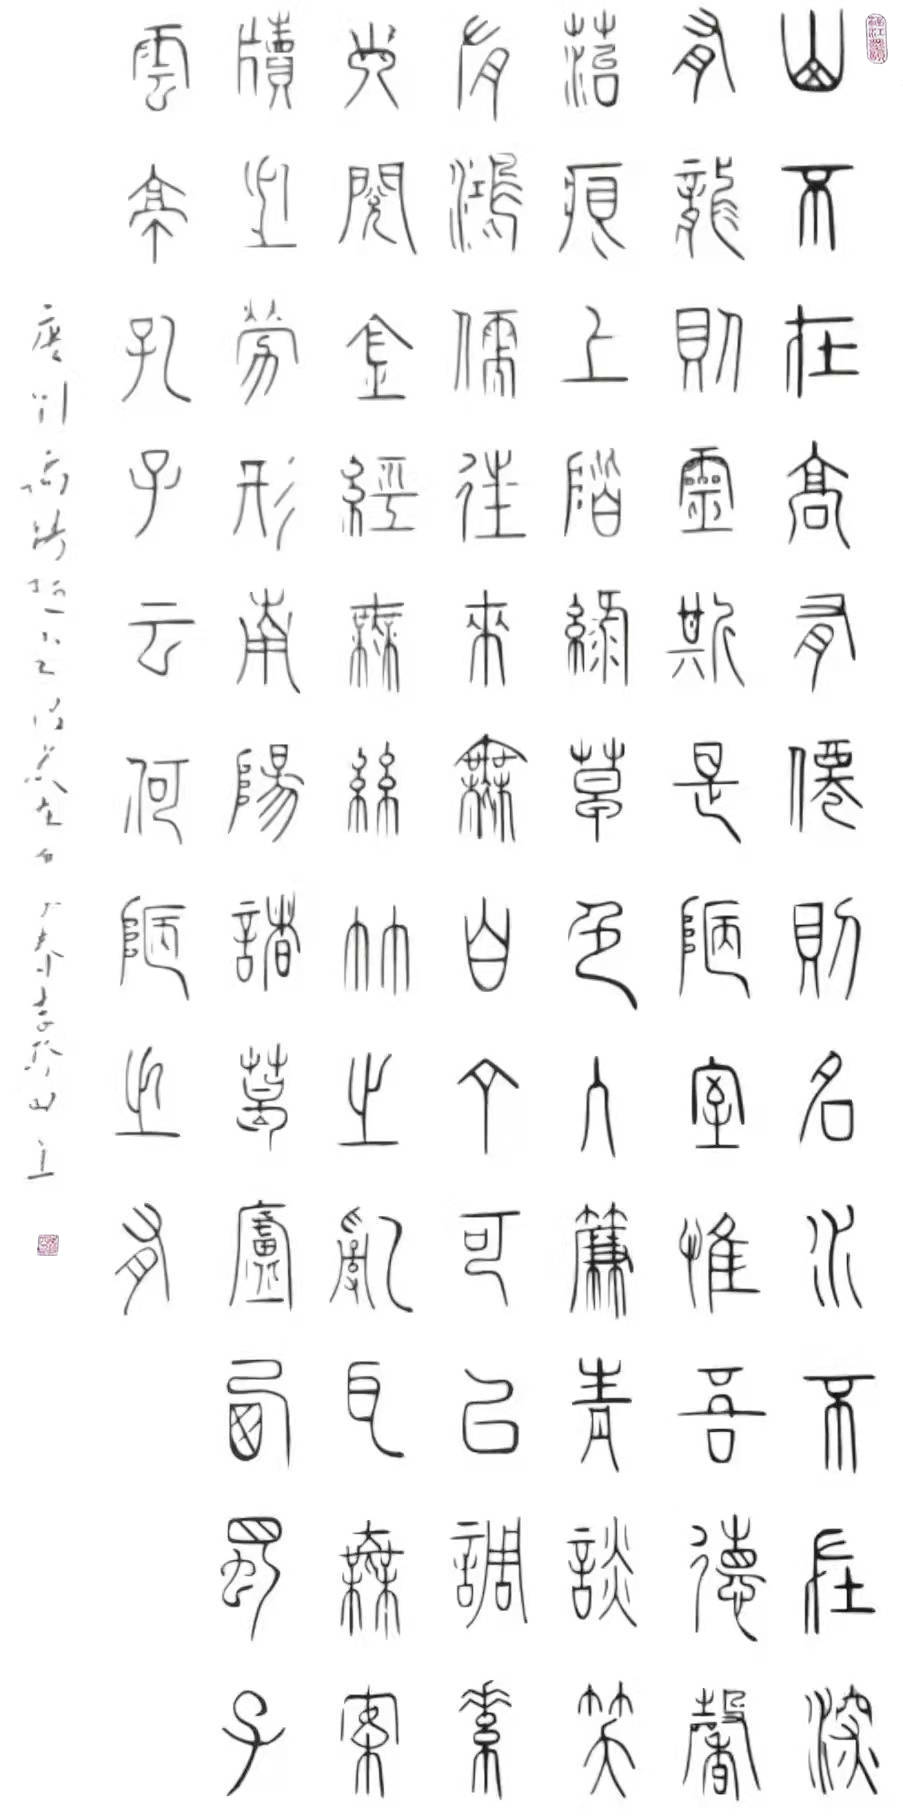 山不在高有僊則名水不在深
有龍則靈斯是陋室惟吾德馨
菭痕上階綠草色入簾青談笑
有鴻儒往來無白丁可以調素
琴閱金經無絲竹之亂耳無案
牘之勞形南陽諸葛廬西蜀子
雲亭孔子云何陋之有
唐刘禹錫